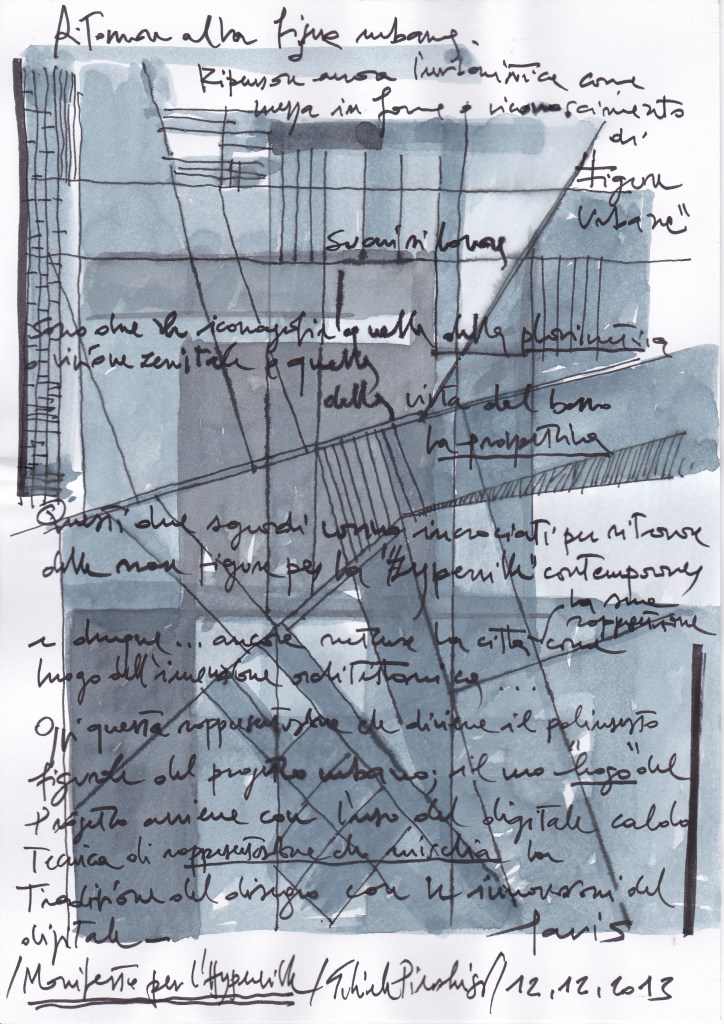 Ritornare alla figura urbana.
Ripensare ancora l'urbanistica come
messa in forma e riconoscimento
di
"figure
urbane"
su cui si lavora
Sono due le iconografie quella della planimetria
o visione zenitale e quella
della vista dal basso
la prospettiva
Questi due sguardi vanno incrociati per ritrovare
delle nuove figure per la "Hyperville" contemporanea
la sua
rappresentazione
e dunque... ancora mettere la città come
luogo dell'invenzione architettonica...
Oggi questa rappresentazione che diviene il palinsesto
figurale del progetto urbano; il suo "luogo" del
Progetto avviene con l'uso del digitale caldo
Tecnica di rappresentazione che mischia la
Tradizione del disegno con le innovazioni del
digitale —
Paris
/Manifesto per l'Hyperville/ /12.12.2013